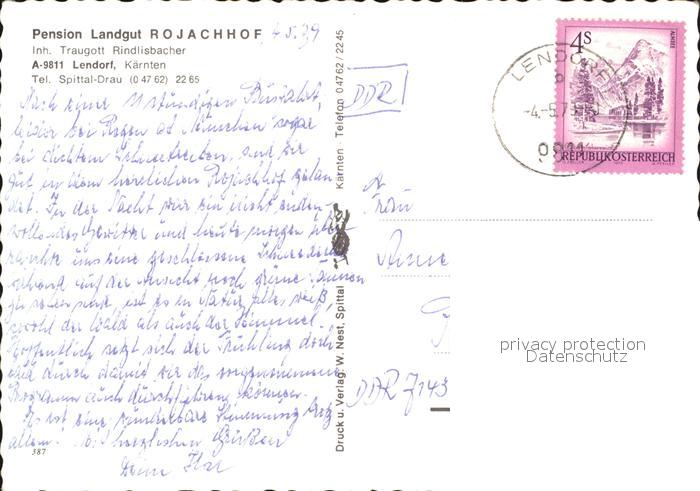 Pension Landgut ROJACHHOF, 4.5.79
Inh. Traugott Rindlisbacher
A-9811 Lendorf, Kärnten
Tel. Spittal-Drau (0 47 62) 22 65
Nach einer 11 stündigen Busfahrt,
leider bei Regen ab München sogar
bei dichtem Schneetreiben, sind wir
gut in dem herrlichen Rojachhof gelan-
det. In der Nacht war ein nicht enden-
wollendes Gewitter und heute morgen über-
raschte uns eine geschlossene Schneedecke
während auf der Ansicht noch grüne
zu sehen sind, ist es in Natur alles weiß,
sowohl der Wald als auch der Himmel.
Hoffentlich setzt sich der Frühling doch
durch damit wir das vorgenommene
Programm auch durchführen können.
Es ist eine wunderbare Stimmung trotz
allem! Mit herzlichen Grüßen
Deine Ilse
387
Druck u. Verlag: W. Nest, Spittal
Kärnten · Telefon 0 47 62 / 22 45
DDR
Frau
Anne
DDR 7143
LENDORF
-4.-5.79
9811
4 S
ALMSEE
REPUBLIK ÖSTERREICH
privacy protection
Datenschutz